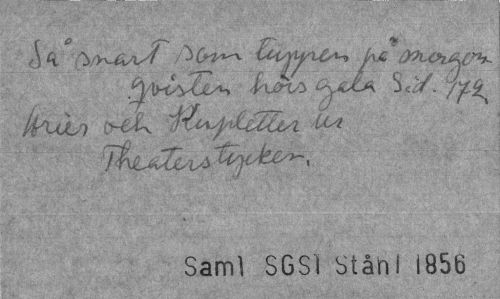 Så snart som tuppen på morgon
qvisten hörs gala Sid. 172
Arier och Kupletter ur
Theaterstycken.
Saml SGS1 Ståhl 1856